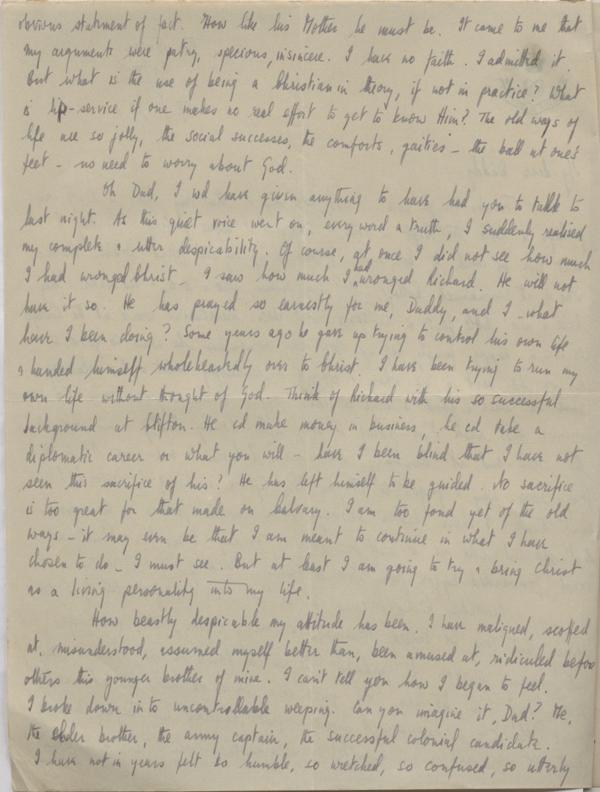 obvious statement of fact. How like his Mother he must be. It came to me that
my arguments were petty, specious, insincere. I have no faith. I admitted it.
But what is the use of being a Christian in theory, if not in practice? What
is lip-service if one makes no real effort to get to know Him? The old ways of
life are so jolly, the social successes, the comforts, gaities - the ball at one's
feet - no need to worry about God.
Oh Dad, I wd have given anything to have had you to talk to
last night. As this quiet voice went on, every word a truth, I suddenly realised
my complete & utter despicability. Of course, at once I did not see how much
I had wronged Christ - I saw how much I had wronged Richard. He will not
have it so. He has prayed so earnestly for me, Daddy, and I - what
have I been doing? Some years ago he gave up trying to control his own life
& handed himself wholeheartedly over to Christ. I have been trying to run my
own life without thought of God. Think of Richard with his so successful
background at Clifton. He cd make money in business, he cd take a
diplomatic career or what you will - have I been blind that I have not
seen this sacrifice of his? He has left himself to be guided. No sacrifice
is too great for that made on Calvary. I am too fond yet of the old
ways - it may even be that I am meant to continue in what I have
chosen to do - I must see. But at least I am going to try & bring Christ
as a living personality into my life.
How beastly despicable my attitude has been. I have maligned, scoffed
at, misunderstood, assumed myself better than, been amused at, ridiculed before
others this younger brother of mine. I can't tell you how I began to feel.
I broke down into uncontrollable weeping. Can you imagine it, Dad? Me,
the elder brother, the army captain, the successful colonial candidate.
I have not in years felt so humble, so wretched, so confused, so utterly